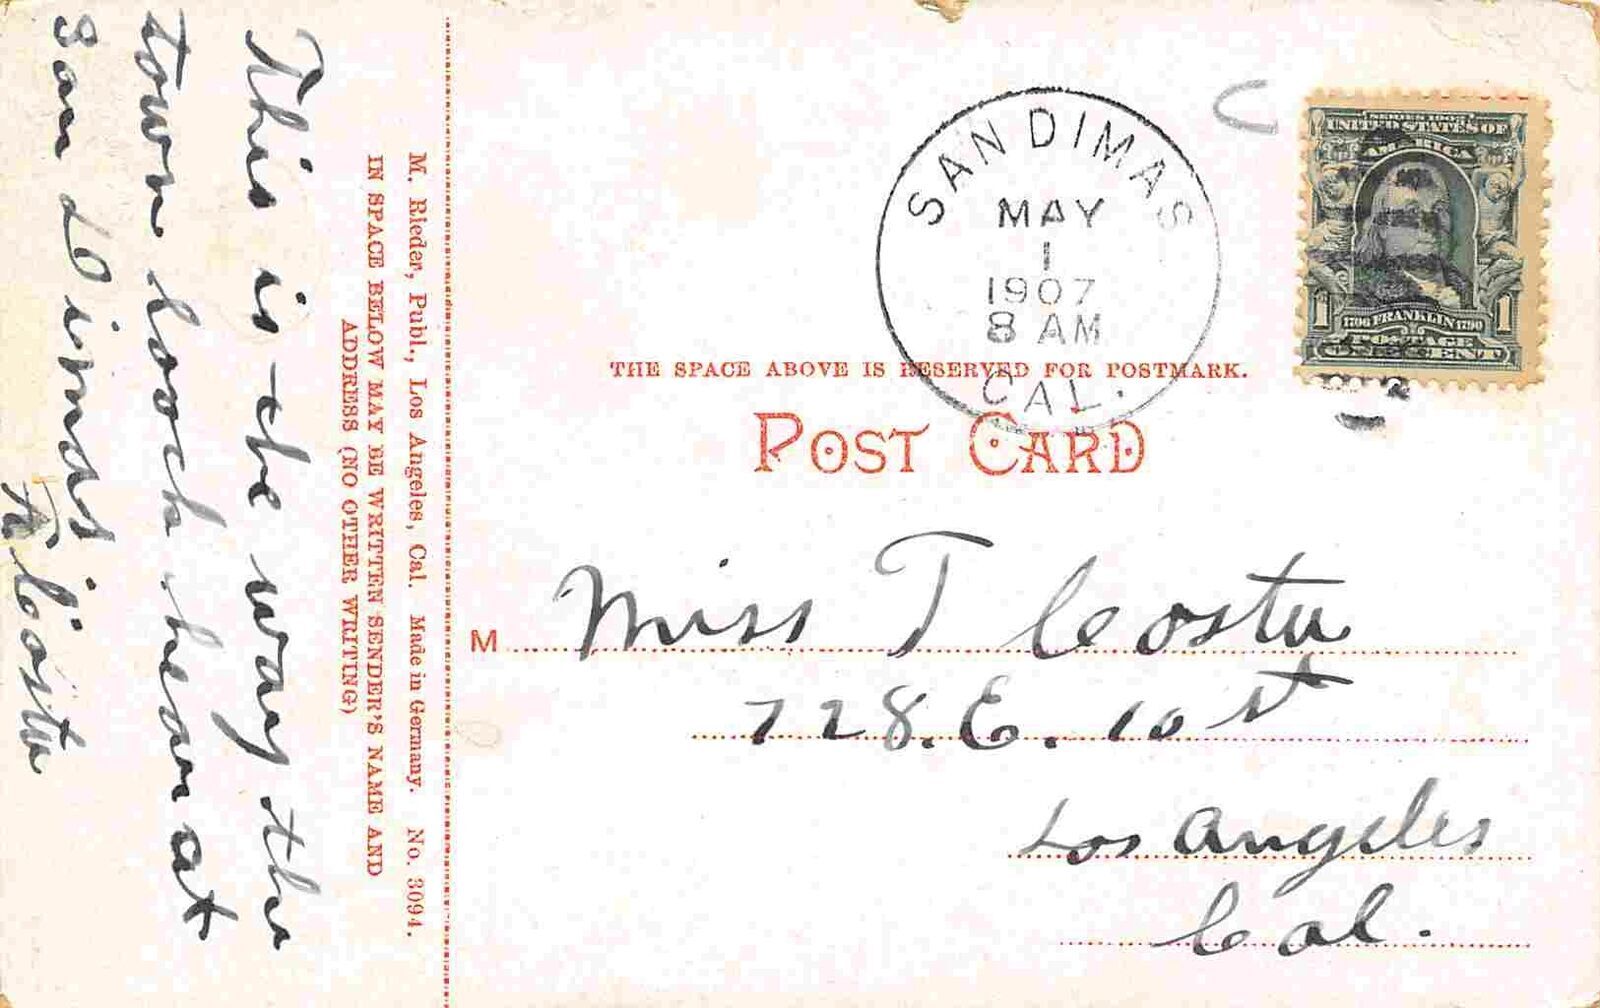 This is the way the
town loock hear at
San Dimas
A Costa
M. Rieder, Publ., Los Angeles, Cal. Made in Germany. No. 3094.
IN SPACE BELOW MAY BE WRITTEN SENDER'S NAME AND
ADDRESS (NO OTHER WRITING)
SAN DIMAS
MAY
1
1907
8 AM
CAL.
SERIES 1902
UNITED STATES OF
AMERICA
1 1706 FRANKLIN 1790 1
POSTAGE
ONE CENT
THE SPACE ABOVE IS RESERVED FOR POSTMARK.
POST CARD
M Miss T Costa
728. E. 10 st
Los Angeles
Cal.